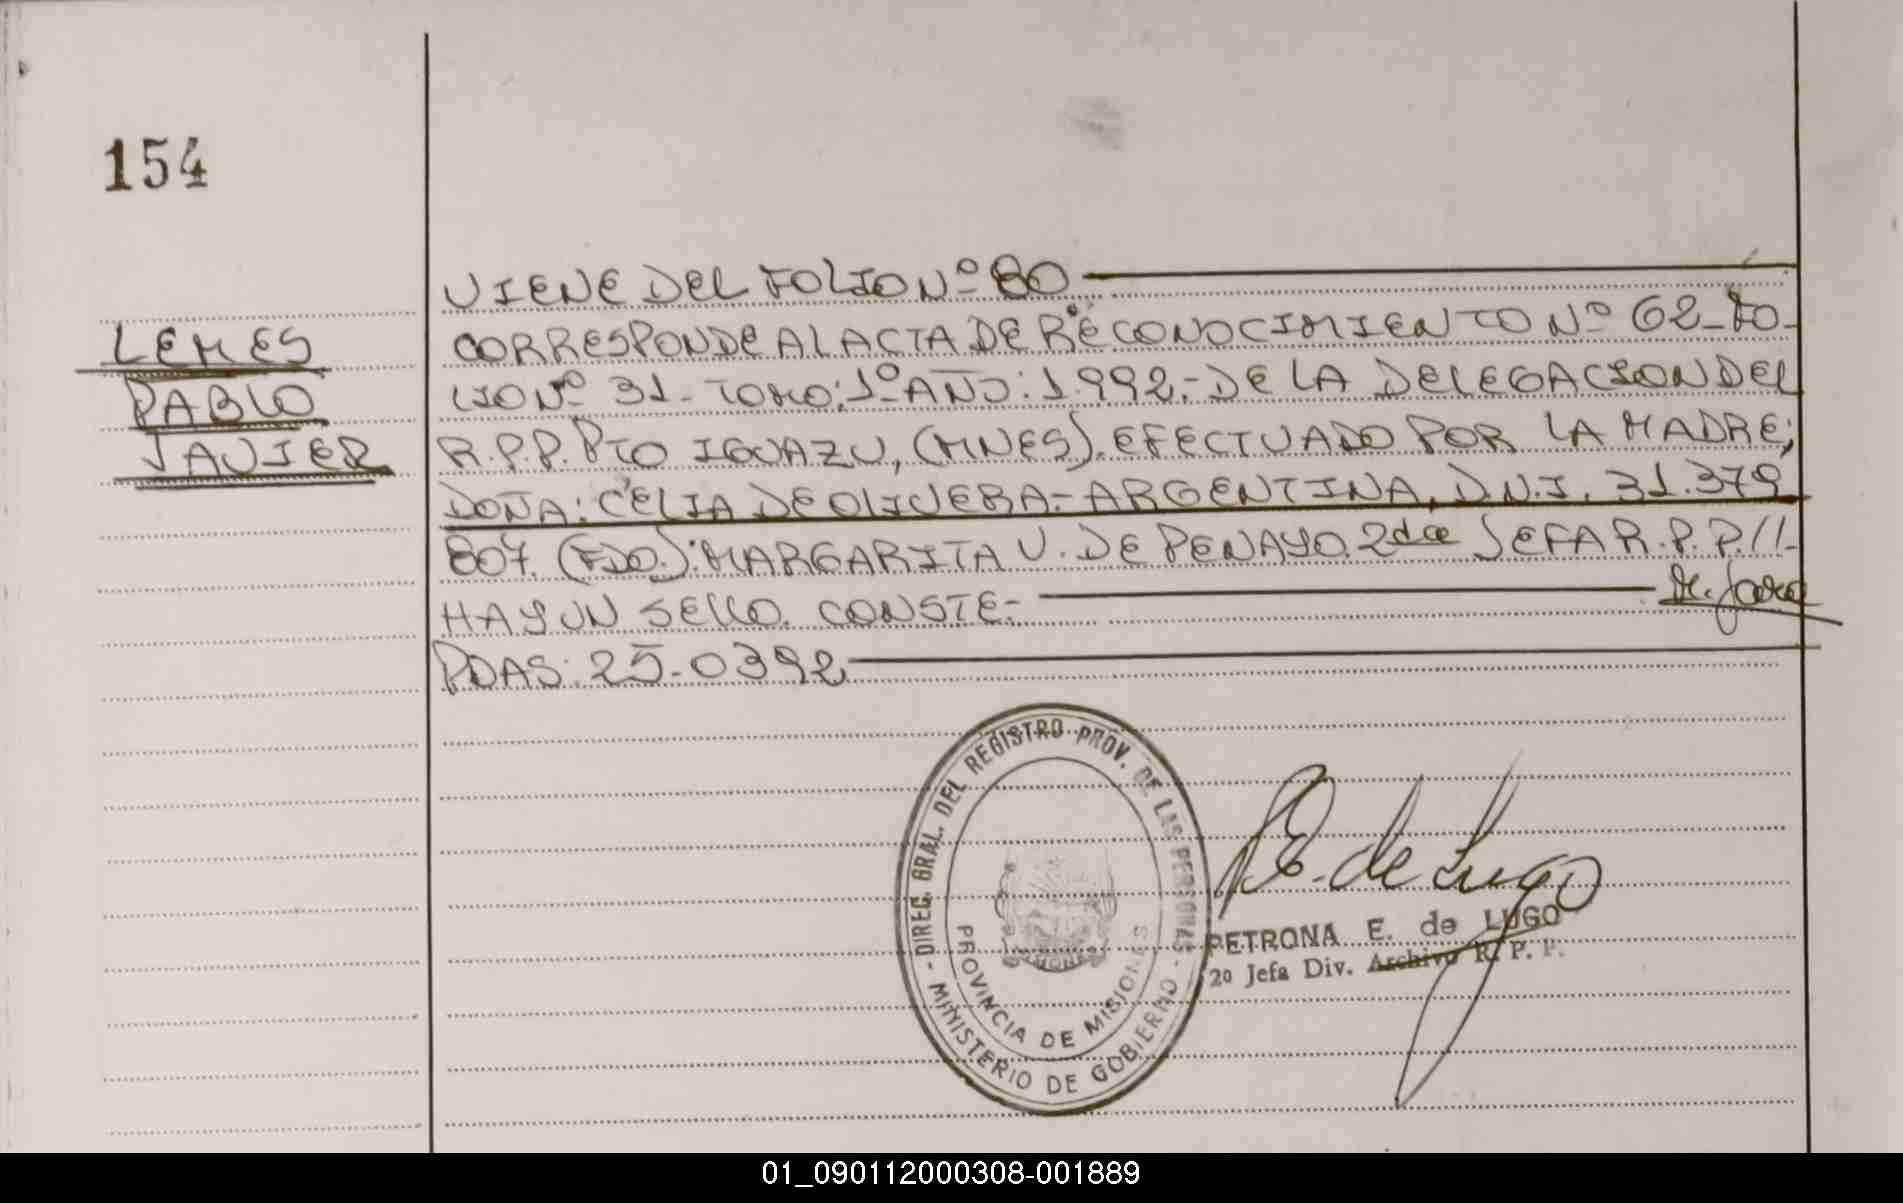 154
LEMES
PABLO
JAVIER
VIENE DEL FOLIO Nº 80
CORRESPONDE AL ACTA DE RECONOCIMIENTO Nº 62-FO-
LIO Nº 31- TOMO: 1º AÑO: 1.992.- DE LA DELEGACION DEL
R.P.P. PTO IGUAZU, (MNES). EFECTUADO POR LA MADRE;
DOÑA: CELIA DE OLIVERA.- ARGENTINA, D.N.I. 31.379
807. (FDO.): MARGARITA V. DE PENAYO 2da JEFA R.P.P.//-
HAY UN SELLO. CONSTE.-
PDAS: 25-03-92
DIREC. GRAL. DEL REGISTRO PROV. DE LAS PERSONAS
- MINISTERIO DE GOBIERNO -
PROVINCIA DE MISIONES
P.E. de Lugo
PETRONA E. de LUGO
2º Jefa Div. Archivo R. P. P.
01_090112000308-001889